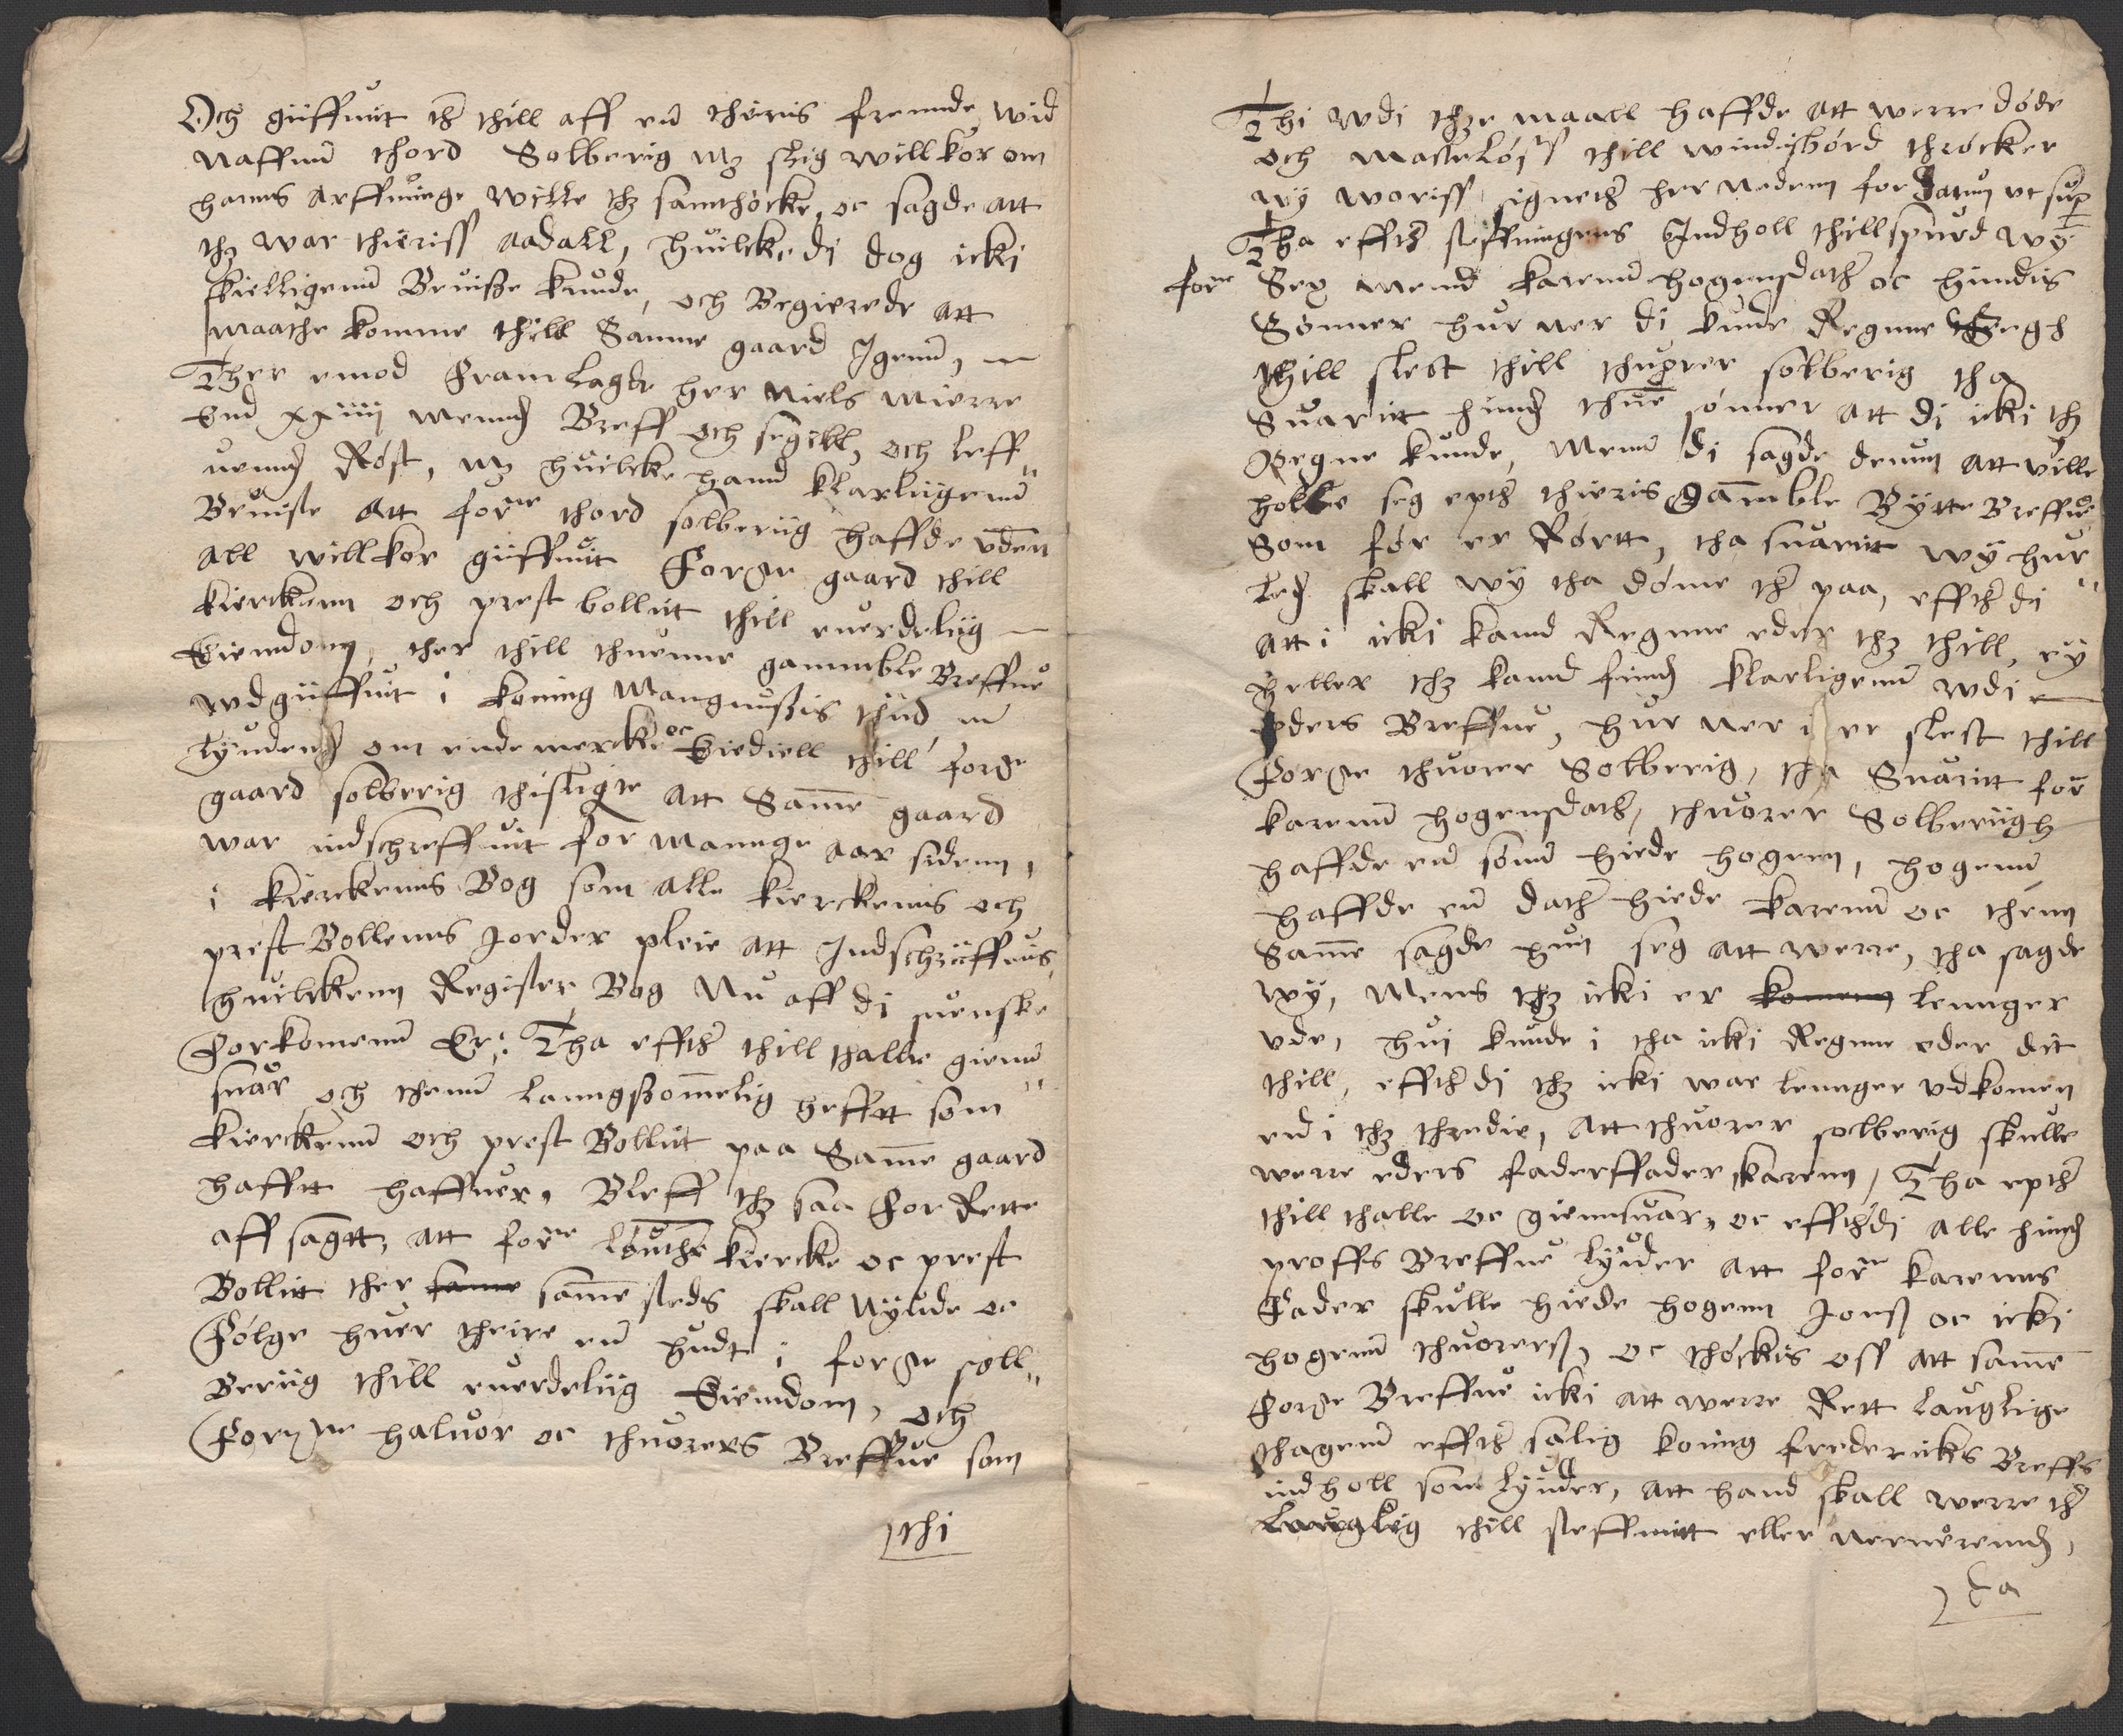 Och giiffuit ther thill aff en thieris frennde wid
naffnn thord Solberig mz slig willkor om
hanns arffuinge wille thz samthöcke, oc sagde att
thz war thieriss aadall, huilcke di dog icki
skielligenn Beuisse kunde, och Begierede att
maathe komme thill Samme gaard Igenn,
Ther emod Framlagde her niels Mierre
End xxiiii mennd Breff och segill, och leff
uennd Røst, mz huilcke hannd klarligenn
Beuiste att forne thord solberiig haffde uden
all willkor giiffuit Forne gaard thill
kierckenn och prest bollit thill euerdeliig
Eiendom, ther thill thuenne gammble Breffue
wdgiiffuit i koning Mangnussis tiid, en
lyudend om ende mercke oc Eiediell thill forne
gaard solberig thisligie att Samme gaard
war indschreffuit for mannge aar sidenn,
i kierckenns Bog som alle kierckenns och
prest Bollenns Jorder pleie att Indschriiffuis,
huilckenn Register Bog Nu aff di suenske
Forkomenn Er: Tha effther thill thalle gienn
suar och thenn lanngsommelig hefftt som
kierckenn och prest Bollit paa Samme gaard
hafft haffuer, Bleff thz saa For Rette
aff sagtt, att forne Löuthe kiercke oc prest
Bollit ther samme samme steds skall Nyude oc
Følge huer theire en hudt i forne soll
Beriig thill euerdeliig Eiendom, och
Forne haluor oc thuorers Breffue som
thi
Thi wdi thze maall haffde att werre döde
och Magtelösse thill windisbörd thröcker
wy woriss signether her nedenn for Datum ut sup
Tha effther steffningens Indholl thillspurd wy
forne Sex mennd karenn hogensdather oc hindis
Sönner hur ner di kunde Regnne segh
thill slect thill thuorer solberig tha
Suaritt hennd thue sönner att di icki thz
Regne kunde, Menn di sagde denum att ville
holle seg epther thieris Gammble Bytte Breffue
Som för er Rörtt, tha suaritt wy hur
led skall wy tha döme ther paa, effther di
att i icki kannd Regnne eder thz thill, ey
heller thz kannd finnd klarligenn wdi
eders Breffue, hur ner i er slect thill
Forne thuorer Solberig, tha Suaritt for
karenn hogensdather, thuorer Solberiigh
haffde en sönn hiede hogenn, hogenn
haffde en dather hiede karenn oc thenn
Samme sagde hun seg att werre, tha sagde
wy, Mens thz icki er komenn lennger
ude, hui kunde i tha icki Regnne eder dit
thill, effther di thz icki war lennger udkomen
end i thz thredie, att thuorer solberig skulle
werre eders faderffader karenn, Tha epther
thill thalle oc giennsuar, oc effther di alle hind
proffs Breffue lyuder att forne karenns
Fader skulle hiede hogenn Jonss oc icki
hogenn thuorerss, oc thöckis oss att samme
Forne Breffue icki att werre Rett lauglige
thagenn effther salig koning frederickes Breffs
indholl som lyuder, att hand skall werre ther
lauglig thill steffnitt eller neruerennd,
da